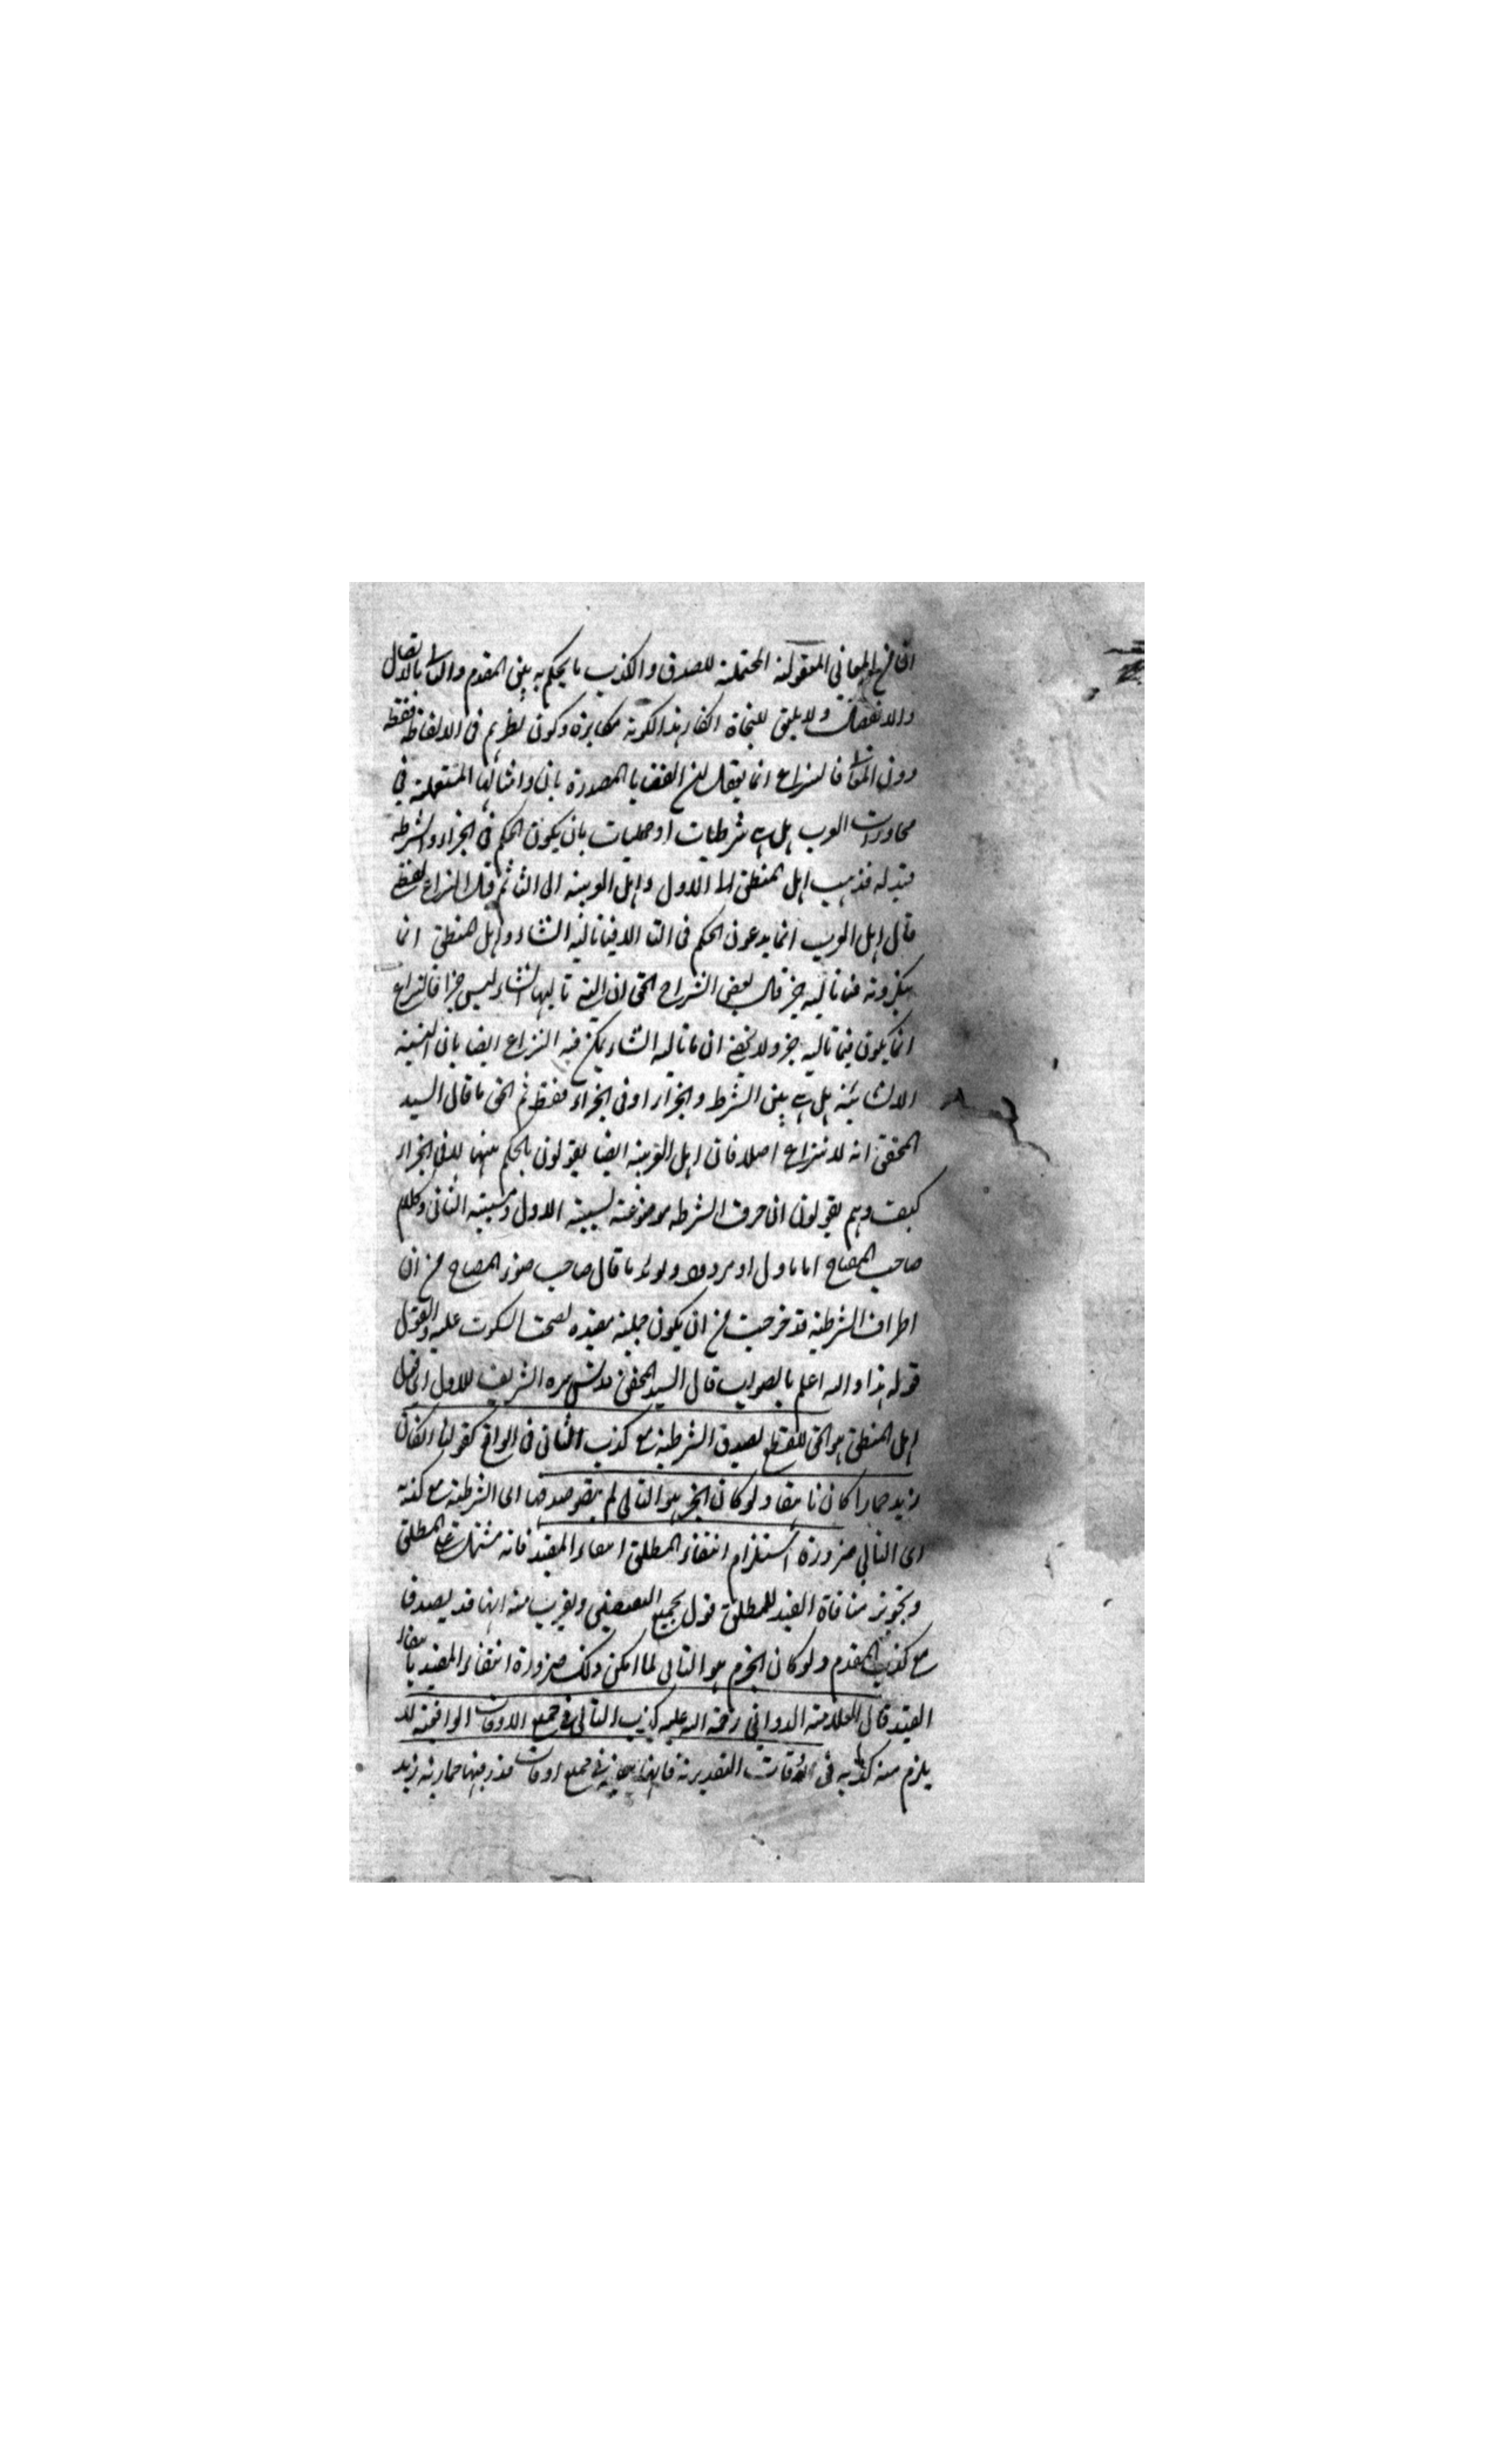 ان من المعاني المعقولة المحتملة للصدق والكذب ما يحكم به بين المقدم والتالى بالاتصال
والانفصال ولا يليق للنحاة انكار هذا لكونه مكابرة وكون نظرهم فى الالفاظ فقط
دون المعانى فالنزاع انما يعقل فى ان القضايا المصدرة بان وامثالها المستعملة في
محاورات العرب هل هى شرطيات او حمليات بان يكون الحكم فى الجزاء والشرط
قيد له فذهب اهل المنطق الى الاول واهل العربية الى الثانى ثم قال النزاع لفظى
قال اهل العرب انما يدعون الحكم فى التالى فيما تاليه انشاء واهل المنطق انما
ينكرونه فيما تاليه خبر قال بعض الشراح الحق ان التى تاليها انشاء ليس خبرا فالنزاع
انما يكون فيما تاليه خبر ولا يخفى ان ما تاليه انشاء يمكن فيه النزاع ايضا بان النسبة
الانشائية هل هى بين الشرط والجزاء او فى الجزاء فقط ثم الحق ما قال السيد
المحقق انه لا نزاع اصلا فان اهل العربية ايضا يقولون بالحكم بينهما لا فى الجزاء
كيف وهم يقولون ان حرف الشرط موضوعة لسببية الاول ومسببية الثانى وكلام
صاحب المفتاح اما ماول او مردود ولو لا ما قال صاحب ضوء المصباح من ان
اطراف الشرطية قد خرجت من ان يكون جملية مفيدة لصحت السكوت عليه والقول
قوله هذا والله اعلم بالصواب قال السيد المحقق قدس سره الشريف الاول اى قول
اهل المنطق هو الحق للقطع بصدق الشرطية مع كذب الثانى فى الواقع كقولنا ان كان
زيد حمارا كان ناهقا ولو كان الخبر هو التالى لم يتصور صدقها اى الشرطية مع كذبه
اى التالي ضرورة استلزام انتفاء المطلق انتفاء المقيد فانه مشتمل على المطلق
وتجويز منافاة القيد للمطلق قول بجمع النقيضين ويقرب منه انها قد يصدق
مع كذب المقدم ولو كان الجزم هو التالى لما امكن ذلك ضرورة انتفاء المقيد بانتفاء
القيد قال العلامة الدواني رحمة الله عليه كذب التالى فى جميع الاوقات الواقعية لا
يلزم منه كذبه فى الاوقات التقديرية فانها فى جميع اوقات قدر فيها حمارية زيد